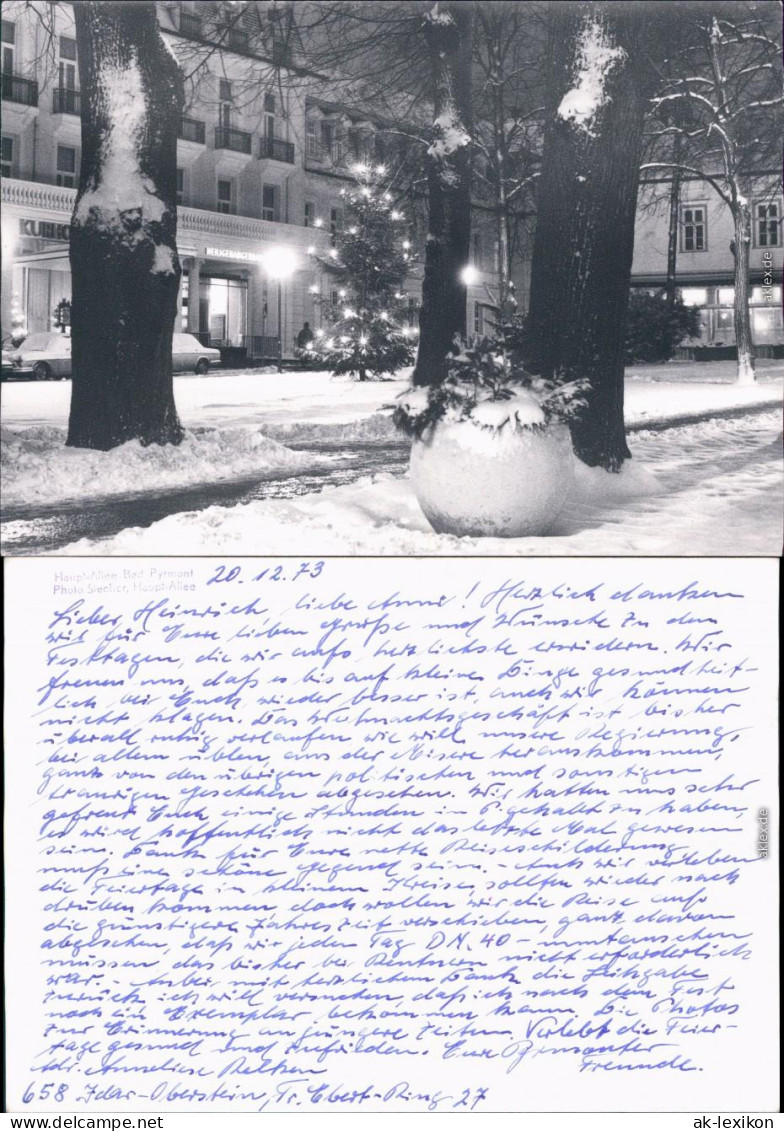 KURHO
HERZGERÄUSCH
Haupt-Allee Bad Pyrmont
Photo Siedler, Haupt-Allee
20.12.73
Lieber Heinrich, liebe Anni! Herzlich danken
wir für Eure lieben Grüße und Wünsche zu den
Festtagen, die wir aufs herzlichste erwidern. Wir
freuen uns, daß es bis auf kleine Dinge gesundheit-
lich bei Euch wieder besser ist, auch wir können
nicht klagen. Das Weihnachtsgeschäft ist bisher
überall ruhig verlaufen wie will unsere Regierung,
bei allem üblen, aus der Misere herauskommen,
ganz von den übrigen politischen und sonstigen
traurigen Geschehen abgesehen. Wir hatten uns sehr
gefreut Euch einige Stunden in P. gehabt zu haben,
es wird hoffentlich nicht das letzte Mal gewesen
sein. Dank für Eure nette Reiseschilderung,
muß eine schöne Gegend sein. - Auch wir verleben
die Feiertage in kleinem Kreise, sollten wieder nach
drüben kommen doch wollen wir die Reise aufs
die günstigere Jahreszeit verschieben, ganz davon
abgesehen, daß wir jeden Tag DM. 40 - umtauschen
müssen, das bisher bei Rentnern nicht erforderlich
war. - Anbei mit herzlichem Dank die Leihgabe
zurück ich will versuchen, daß ich nach dem Fest
noch ein Exemplar bekommen kann. Die Photos
zur Erinnerung an jüngere Zeiten. Verlebt die Feier-
tage gesund und zufrieden. Eure Pyrmonter
Freunde.
Adr. Anneliese
658 Idar-Oberstein, Fr. Ebert-Ring 27
aklexikon.de
akpool.de
ak-lexikon.com